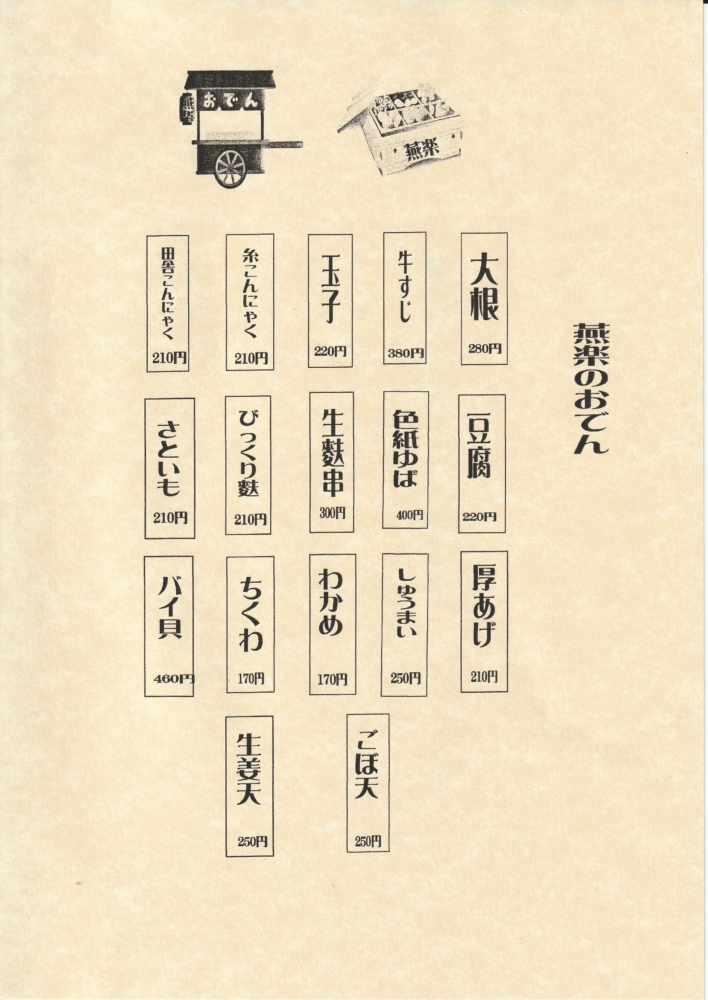 おでん
燕楽
燕楽のおでん
大根
280円
牛すじ
380円
玉子
220円
糸こんにゃく
210円
田舎こんにゃく
210円
豆腐
220円
色紙ゆば
400円
生麩串
300円
びっくり麩
210円
さといも
210円
厚あげ
210円
しゅうまい
250円
わかめ
170円
ちくわ
170円
バイ貝
460円
ごぼ天
250円
生姜天
250円